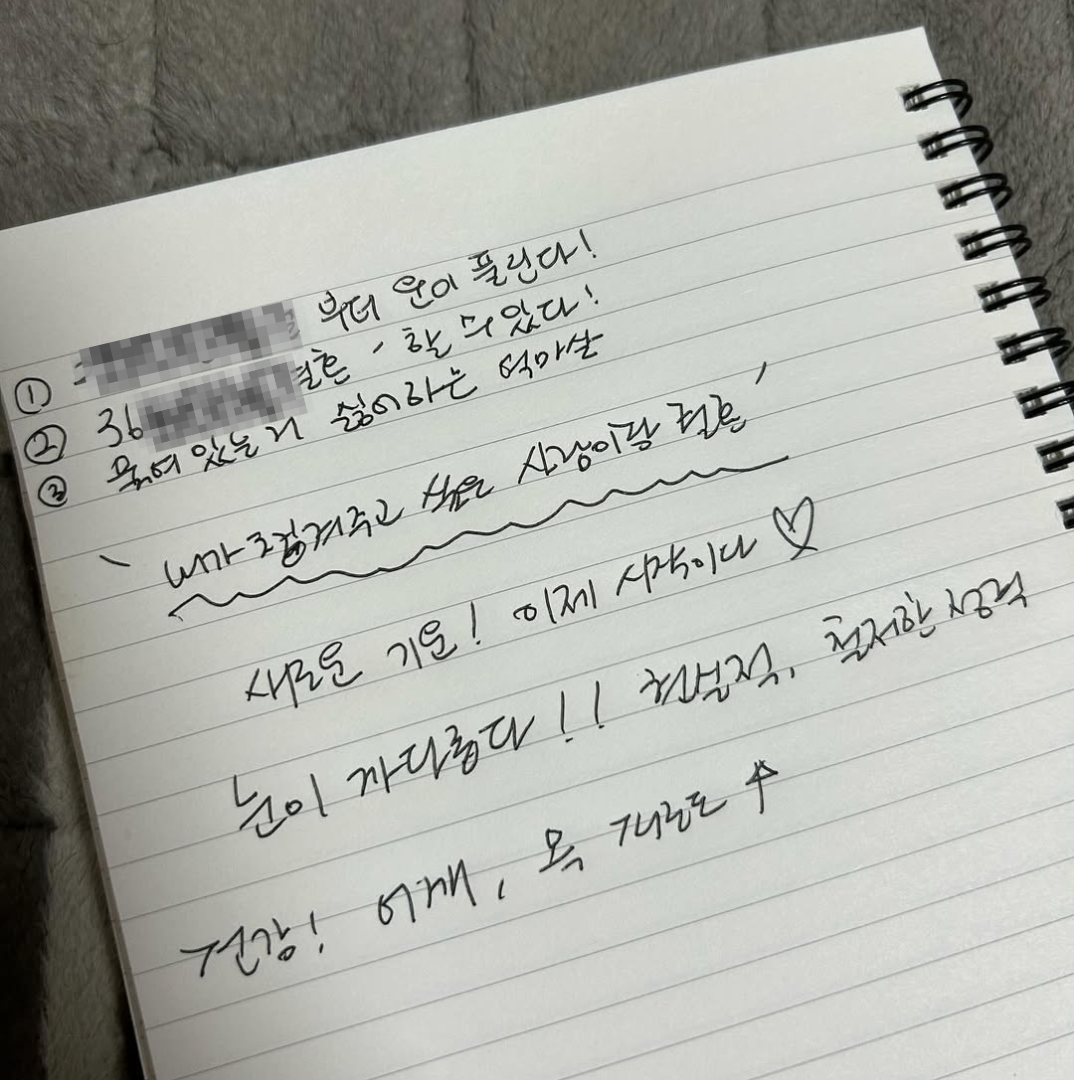 ① 부터 운이 풀린다!
② 36 결혼, 할 수 있다!
③ 묶여 있는 거 싫어하는 역마살
' 내가 챙겨주고 싶은 사람이랑 결혼 '
새로운 기운! 이제 시작이다 ♡
눈이 까다롭다!! 현실적, 철저한 성격
건강! 어깨, 목 피로도 ↑